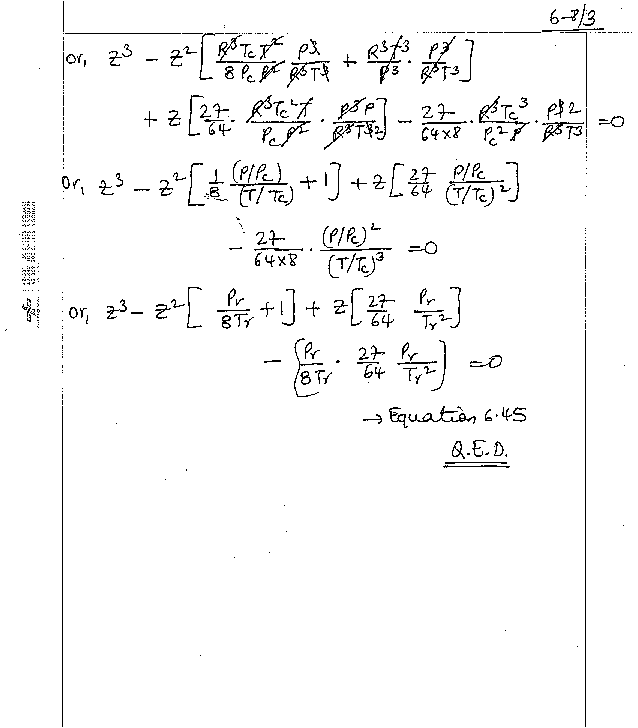 6-8/3
or, z³ − z² [ R³TcT²/8PcP² · P³/R³T³ + R³T³/P³ · P³/R³T³ ]
+ z [ 27/64 · R³Tc²T/PcP² · P³/R³T³ ] − 27/64×8 · R³Tc³/Pc²P · P³/R³T³ = 0
or, z³ − z² [ 1/8 (P/Pc)/(T/Tc) + 1 ] + z [ 27/64 P/Pc/(T/Tc)² ]
− 27/64×8 · (P/Pc)²/(T/Tc)³ = 0
or, z³ − z² [ Pr/8Tr + 1 ] + z [ 27/64 Pr/Tr² ]
− [ Pr/8Tr · 27/64 Pr/Tr² ] = 0
→ Equation 6.45
Q.E.D.